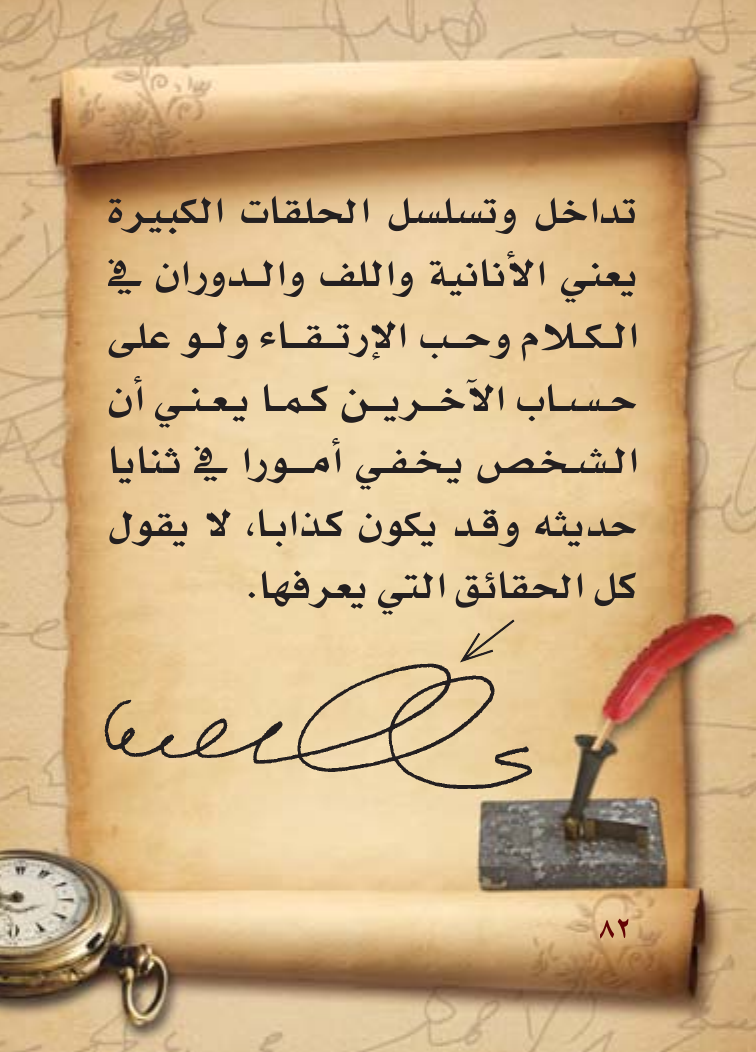 تداخل وتسلسل الحلقات الكبيرة
يعني الأنانية واللف والدوران في
الكلام وحب الإرتقاء ولو على
حساب الآخرين كما يعني أن
الشخص يخفي أمورا في ثنايا
حديثه وقد يكون كذابا، لا يقول
كل الحقائق التي يعرفها.
٨٢